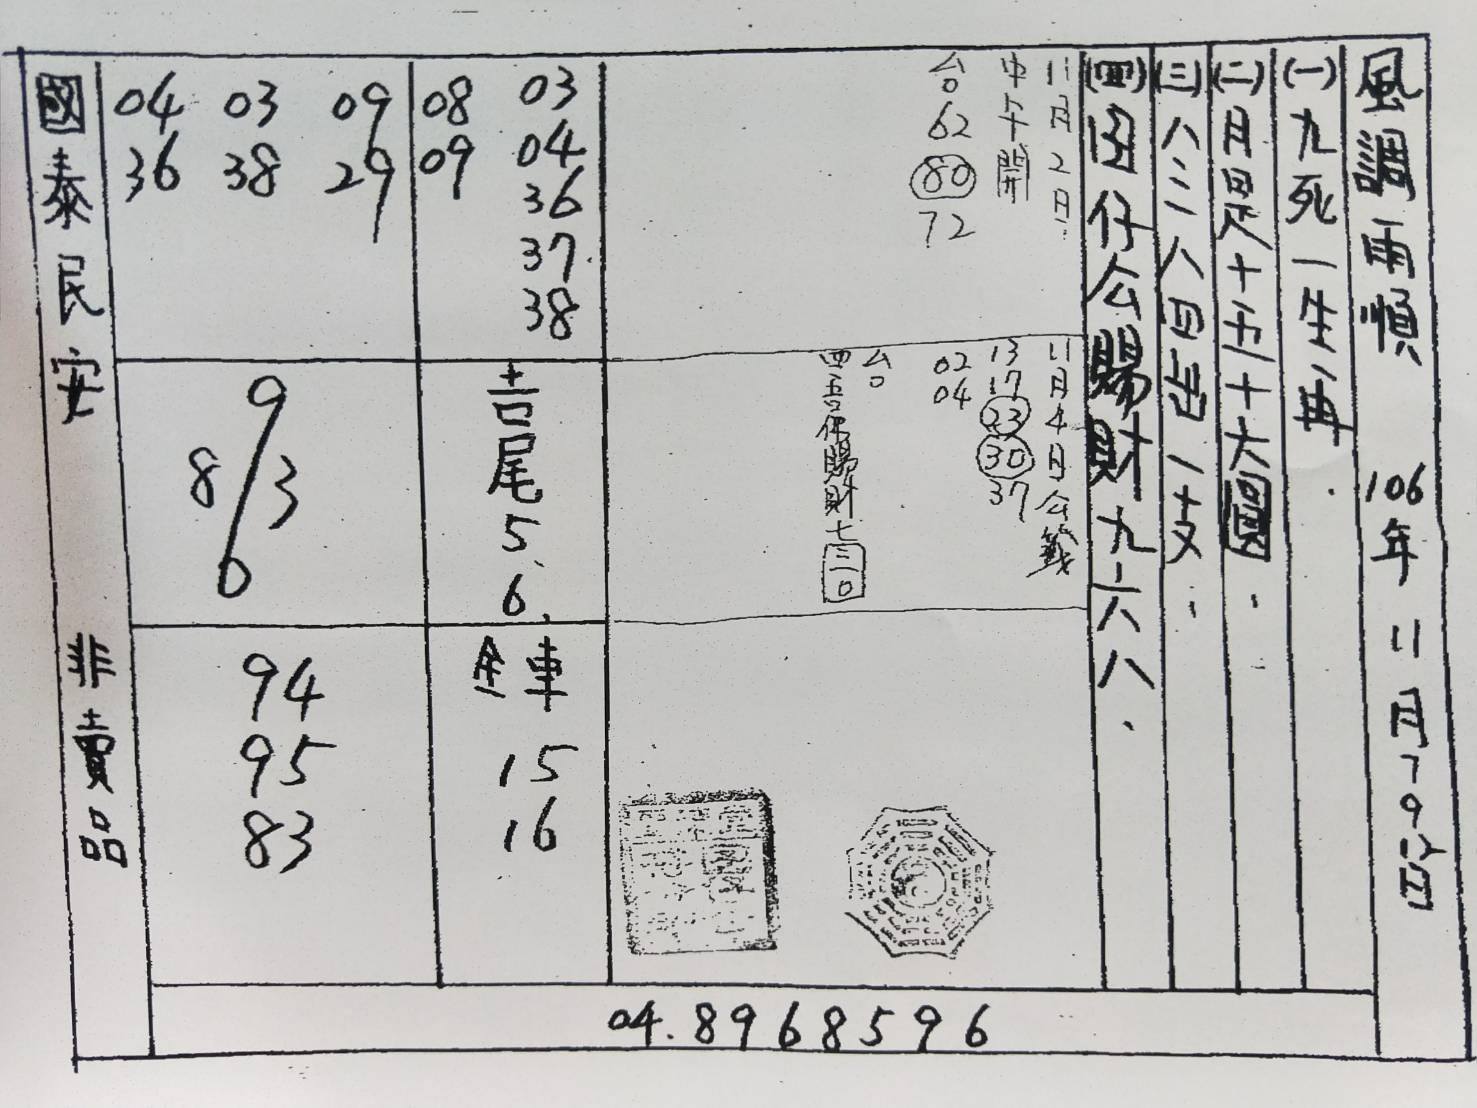 風調雨順 106年11月7日
(一)九死一生再.
(二)月尾十五十六圓.
(三)八二八四出一支.
(四)囝仔公賜財九六八.
11月2日.
中午開
台 62 80 72
11月4日公籤
13 17 23 30 37
02 04
台
四吾佛賜財七三一0
03 04 36 37 38
08 09
09 29
03 38
04 36
吉尾5.6.
9
8 3
0
隼 15 16
94
95
83
04.8968596
國泰民安 非賣品